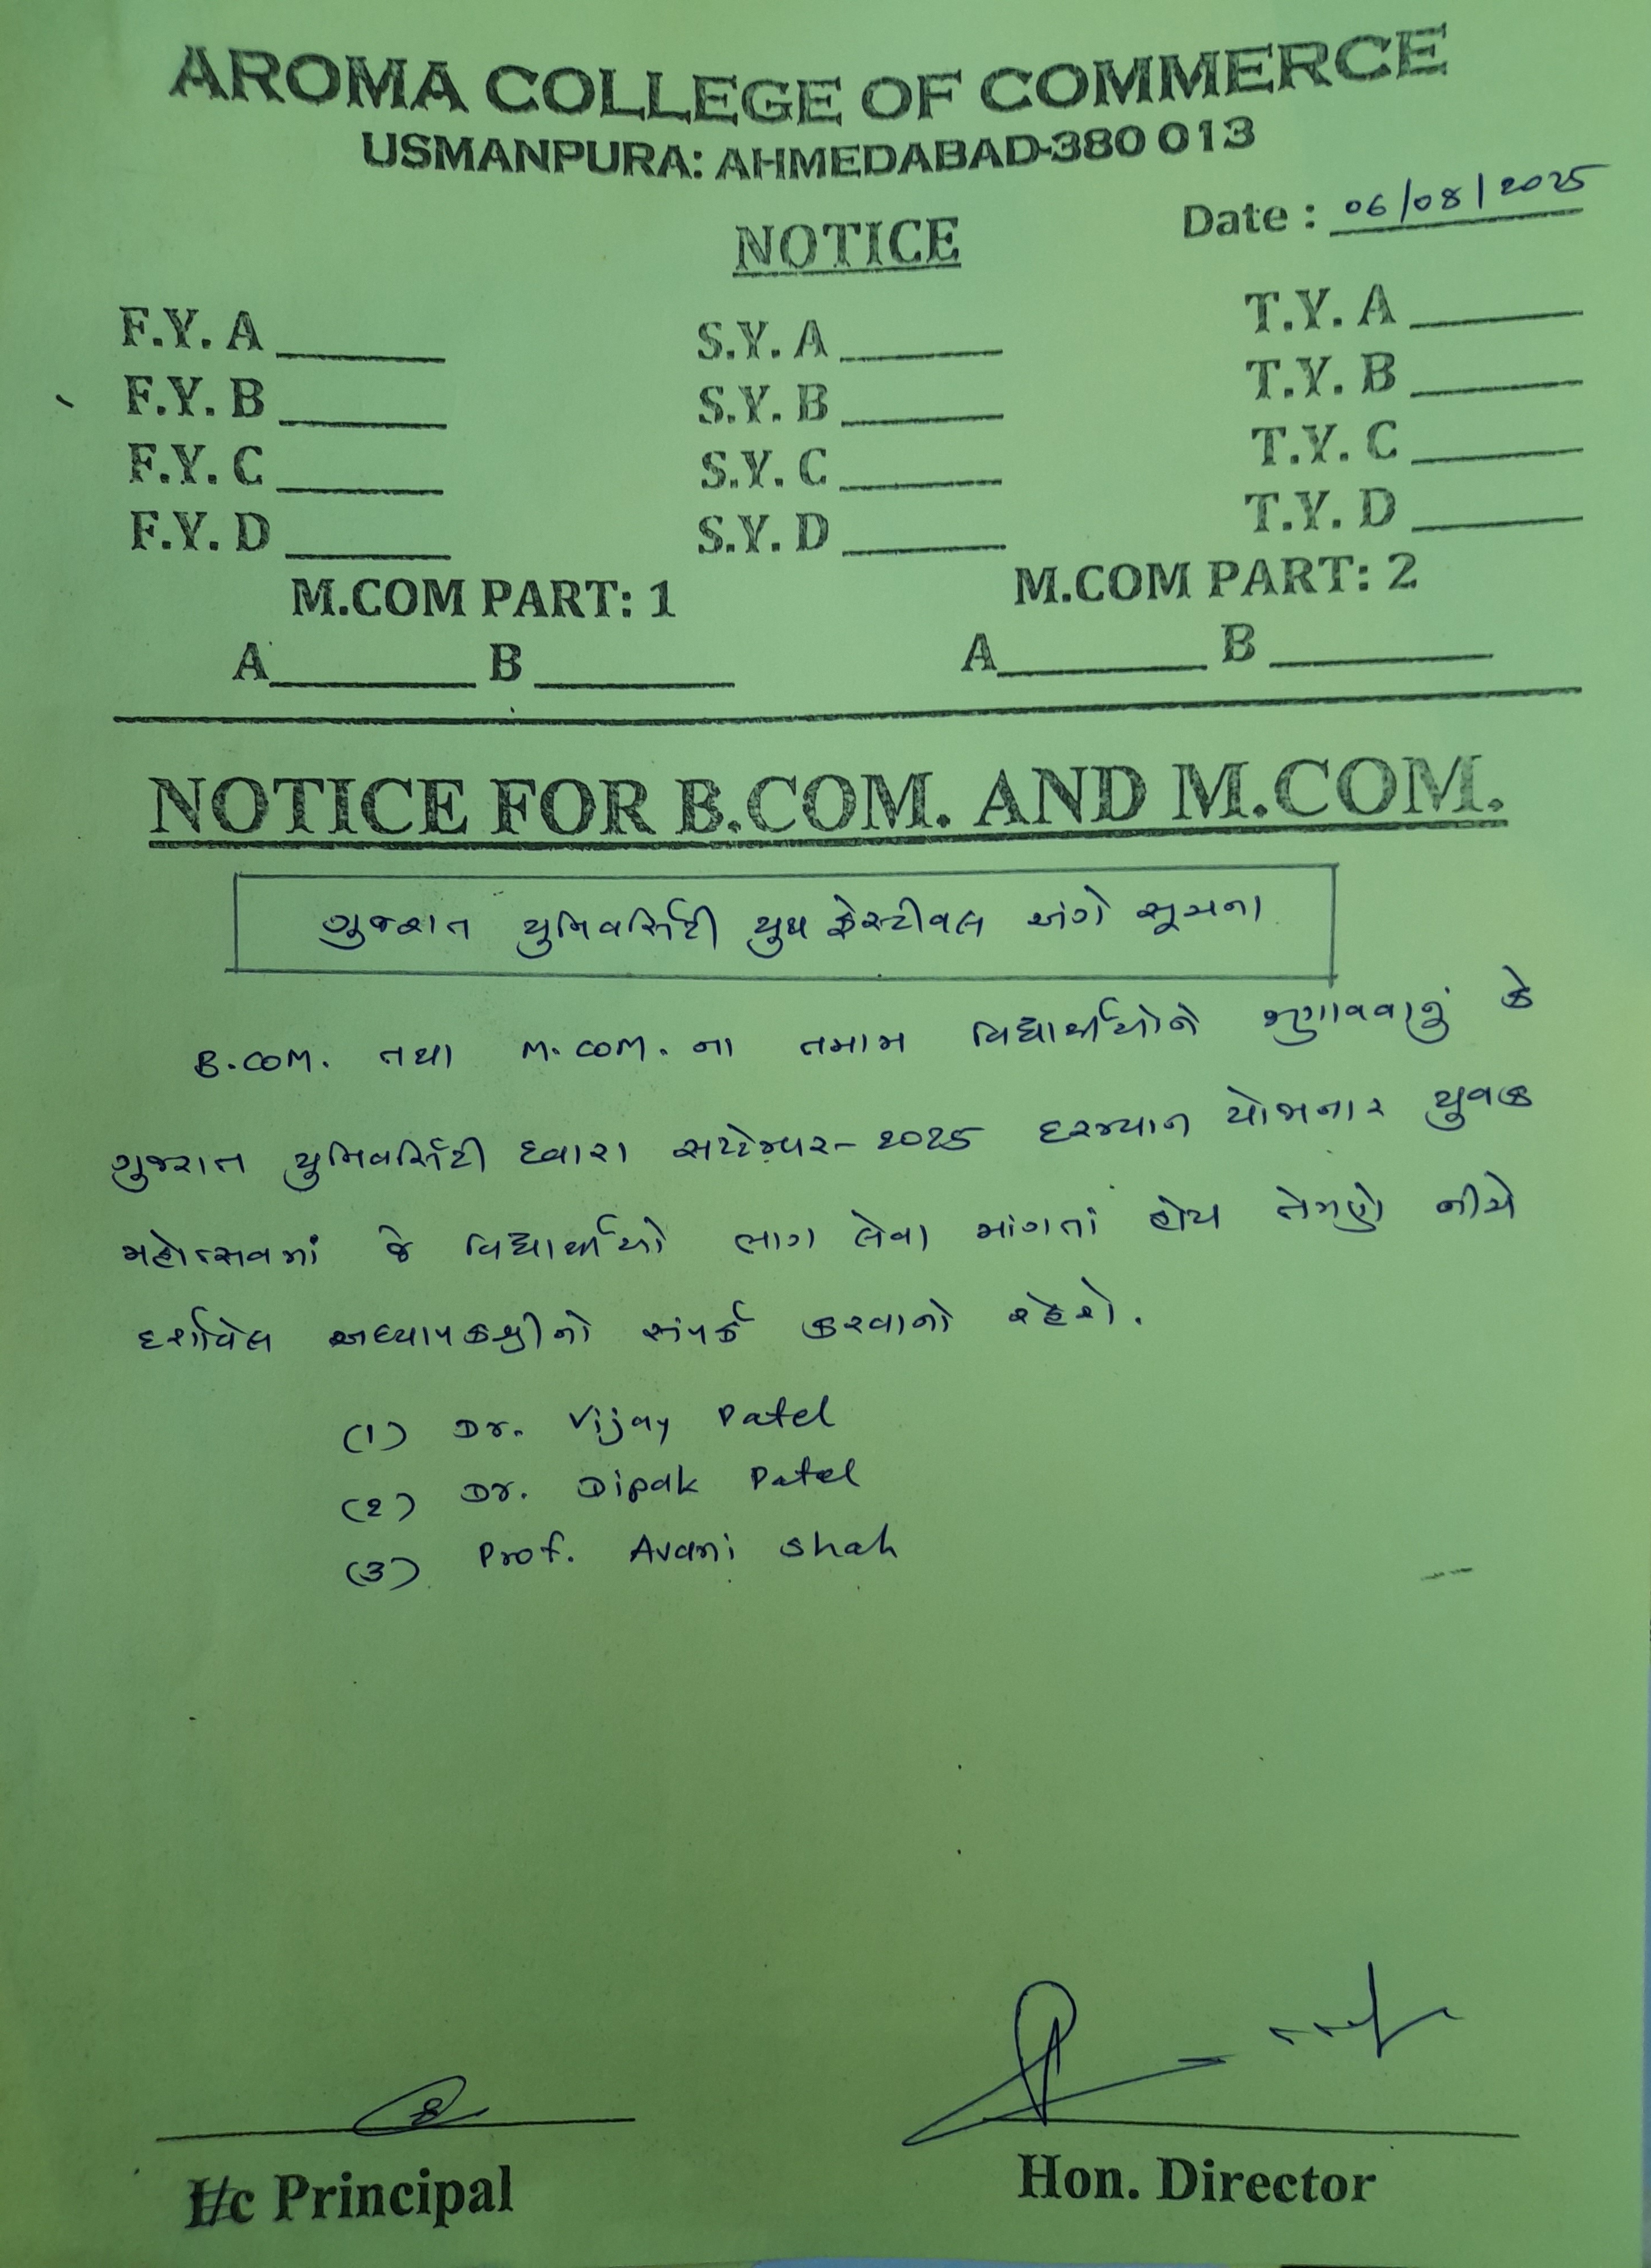 AROMA COLLEGE OF COMMERCE
USMANPURA: AHMEDABAD-380 013
Date : 06/08/2025
NOTICE
F.Y. A ______ S.Y. A ______ T.Y. A ______
F.Y. B ______ S.Y. B ______ T.Y. B ______
F.Y. C ______ S.Y. C ______ T.Y. C ______
F.Y. D ______ S.Y. D ______ T.Y. D ______
M.COM PART: 1 M.COM PART: 2
A______ B ______ A______ B ______
NOTICE FOR B.COM. AND M.COM.
ગુજરાત યુનિવર્સિટી યુથ ફેસ્ટીવલ અંગે સૂચના
B.COM. તથા M.COM. ના તમામ વિદ્યાર્થીઓને જણાવવાનું કે
ગુજરાત યુનિવર્સિટી દ્વારા સપ્ટેમ્બર-2025 દરમ્યાન યોજાનાર યુવક
મહોત્સવમાં જે વિદ્યાર્થીઓ ભાગ લેવા માંગતાં હોય તેમણે નીચે
દર્શાવેલ અધ્યાપકશ્રીનો સંપર્ક કરવાનો રહેશે.
(1) Dr. Vijay Patel
(2) Dr. Dipak Patel
(3) Prof. Avani Shah
I/c Principal Hon. Director